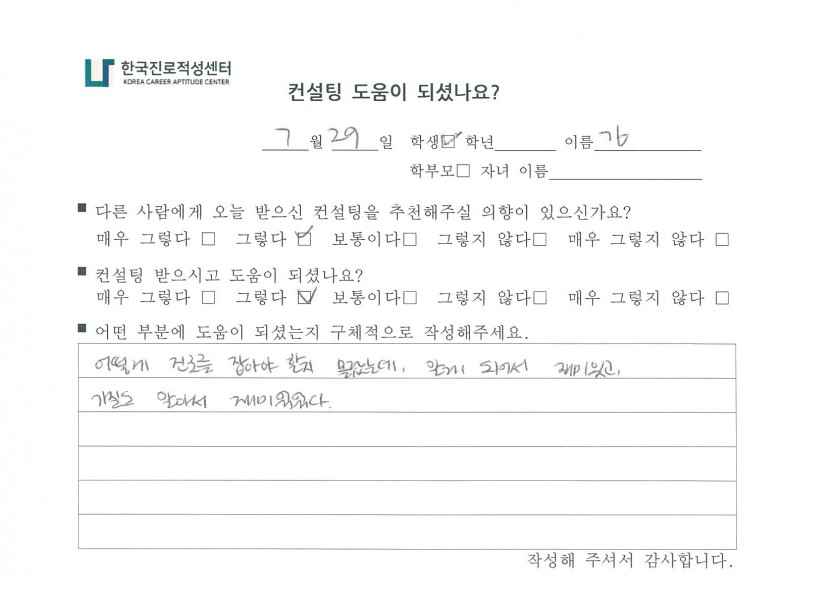 한국진로적성센터
KOREA CAREER APTITUDE CENTER
컨설팅 도움이 되셨나요?
7월 29일 학생☑ 학년 이름
학부모□ 자녀 이름
■ 다른 사람에게 오늘 받으신 컨설팅을 추천해주실 의향이 있으신가요?
매우 그렇다 □ 그렇다 ☑ 보통이다□ 그렇지 않다□ 매우 그렇지 않다 □
■ 컨설팅 받으시고 도움이 되셨나요?
매우 그렇다 □ 그렇다 ☑ 보통이다□ 그렇지 않다□ 매우 그렇지 않다 □
■ 어떤 부분에 도움이 되셨는지 구체적으로 작성해주세요.
어떻게 진로를 잡아야 할지 몰랐는데, 알게 되어서 재미있고,
기질도 알아서 재미있었다.
작성해 주셔서 감사합니다.